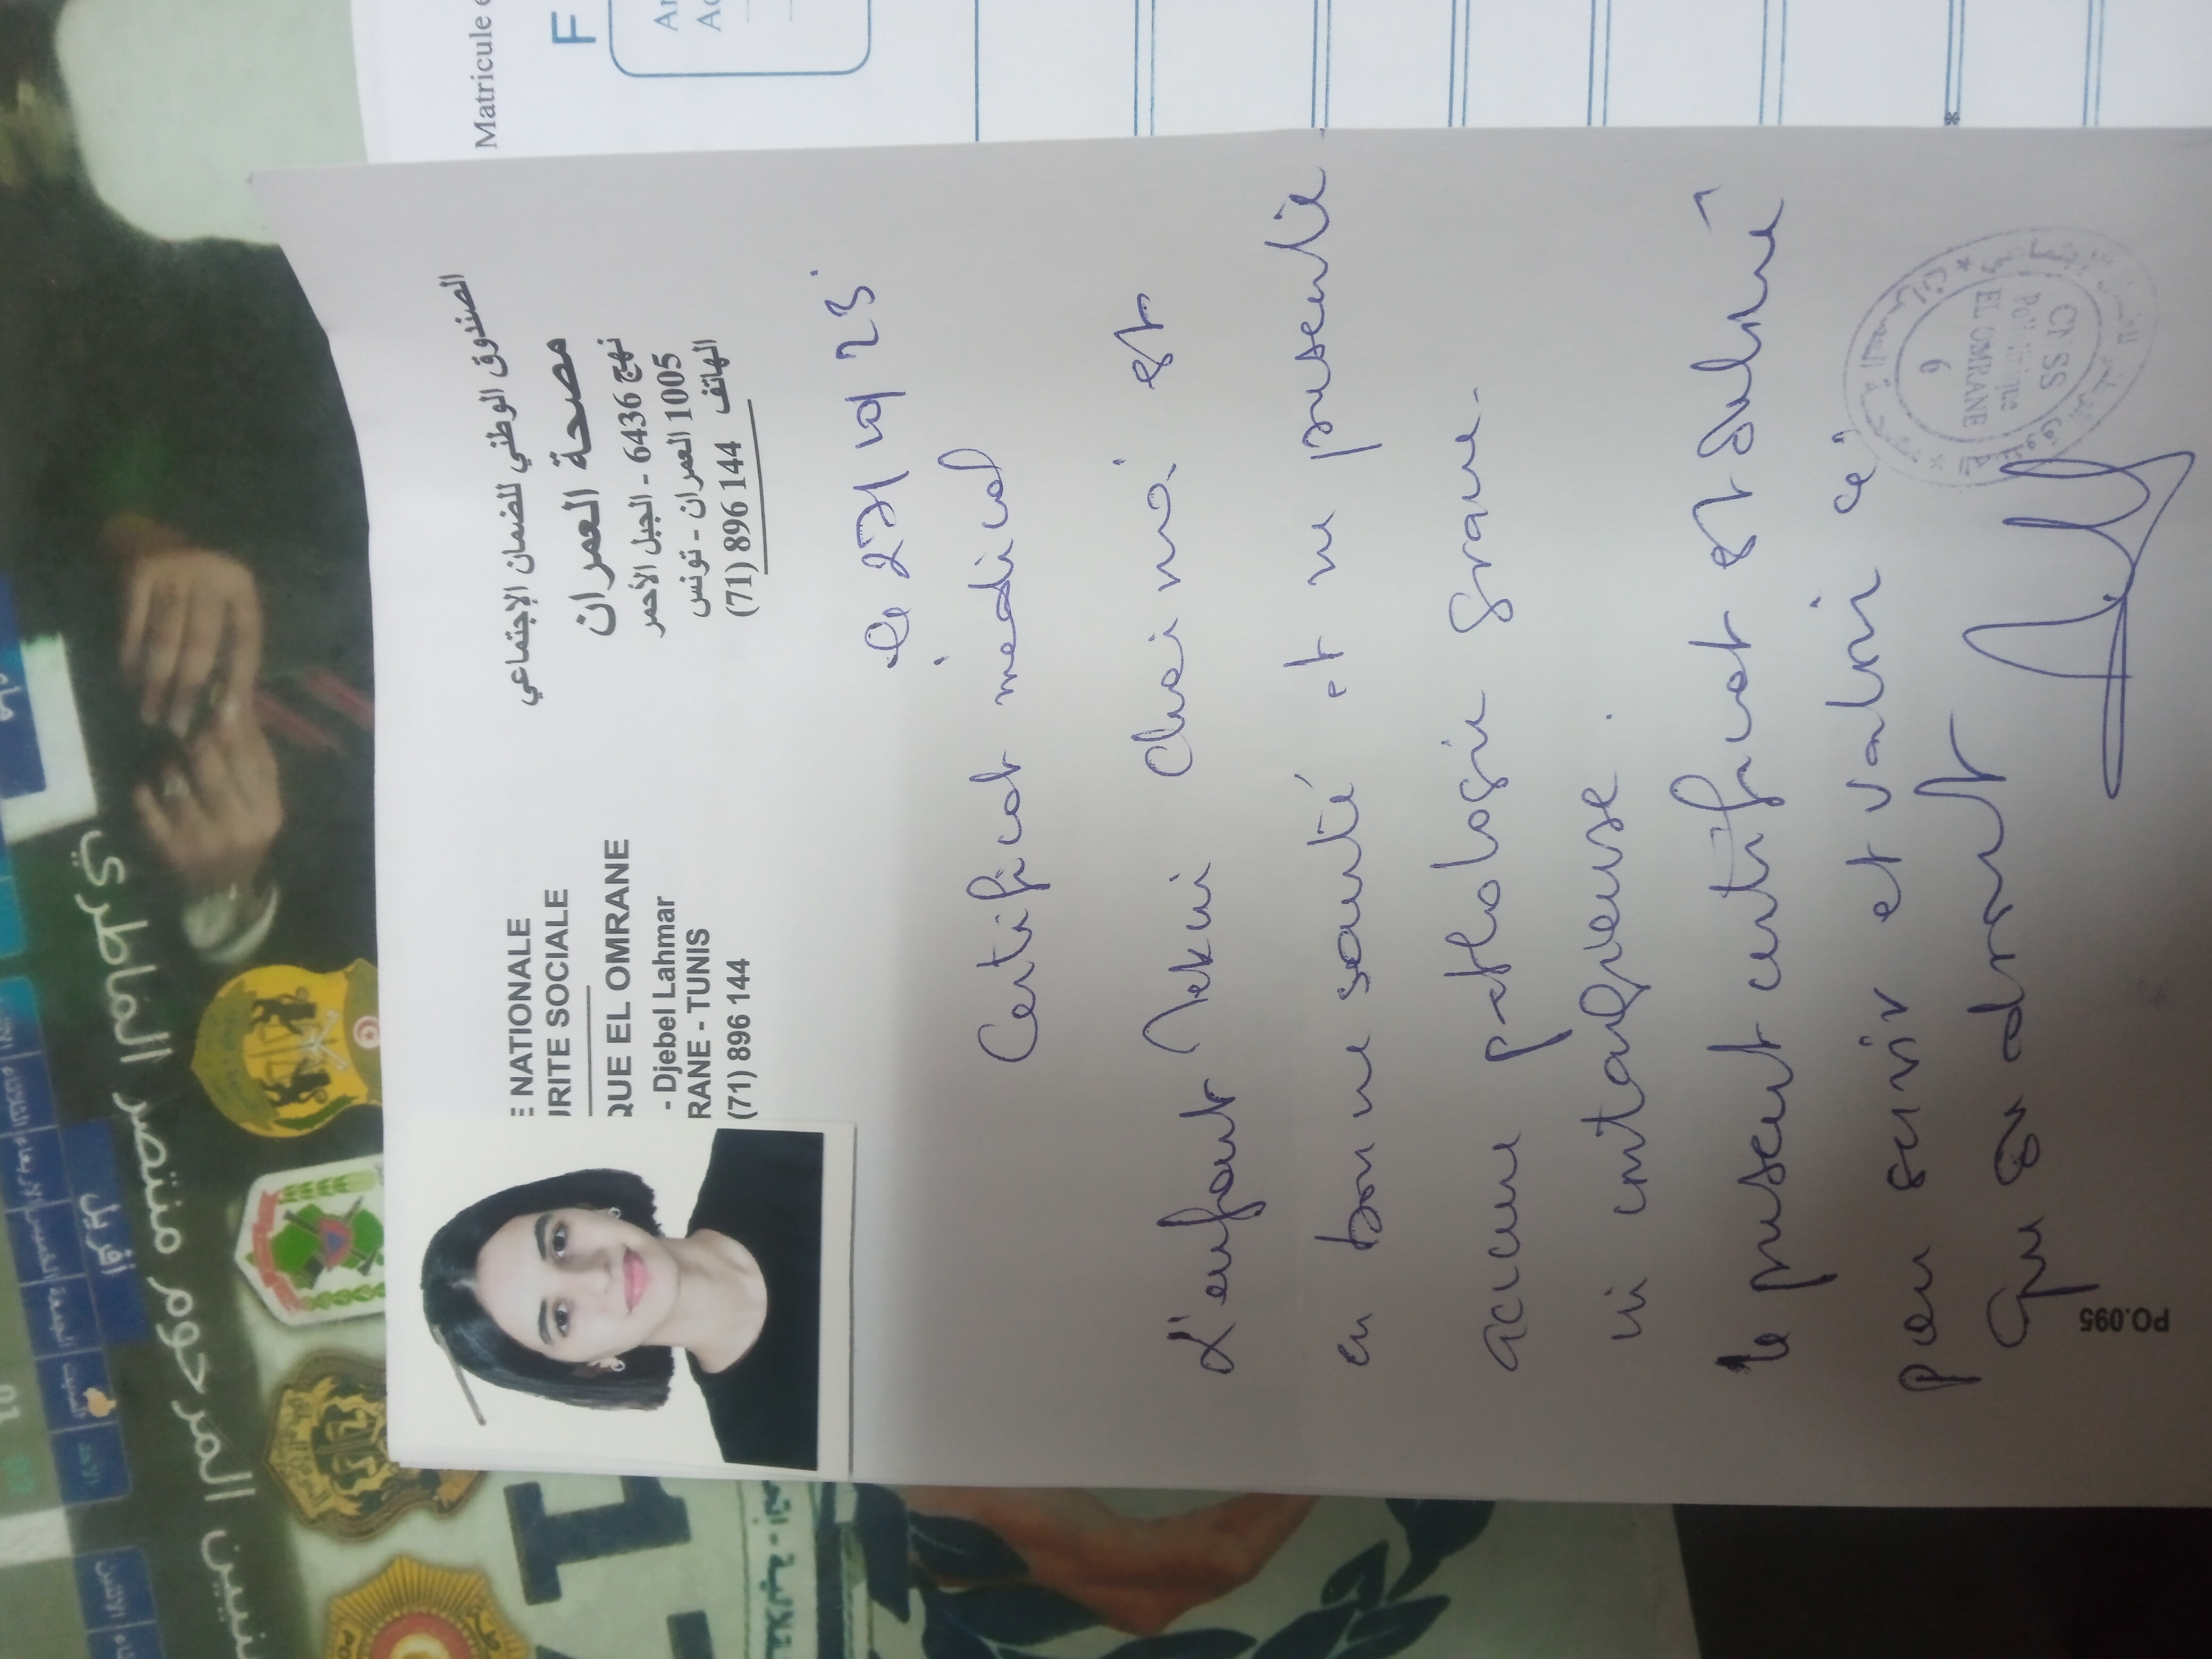 E NATIONALE
URITE SOCIALE
QUE EL OMRANE
- Djebel Lahmar
RANE - TUNIS
(71) 896 144
الصندوق الوطني للضمان الإجتماعي
مصحة العمران
نهج 6436 - الجبل الأحمر
1005 العمران - تونس
الهاتف 144 896 (71)
le 27/10/23
Certificat médical
L'enfant Mekni Chaima est
en bonne santé et ne presente
aucune pathologie grave
ni contagieuse.
le present certificat est delivré
pour servir et valoir ce
que de droit
PO.095
CNSS
Policlinique
EL OMRANE
6
Matricule
F
أفريل
السبت
الأحد
الاثنين
المرحوم منتصر الماطري